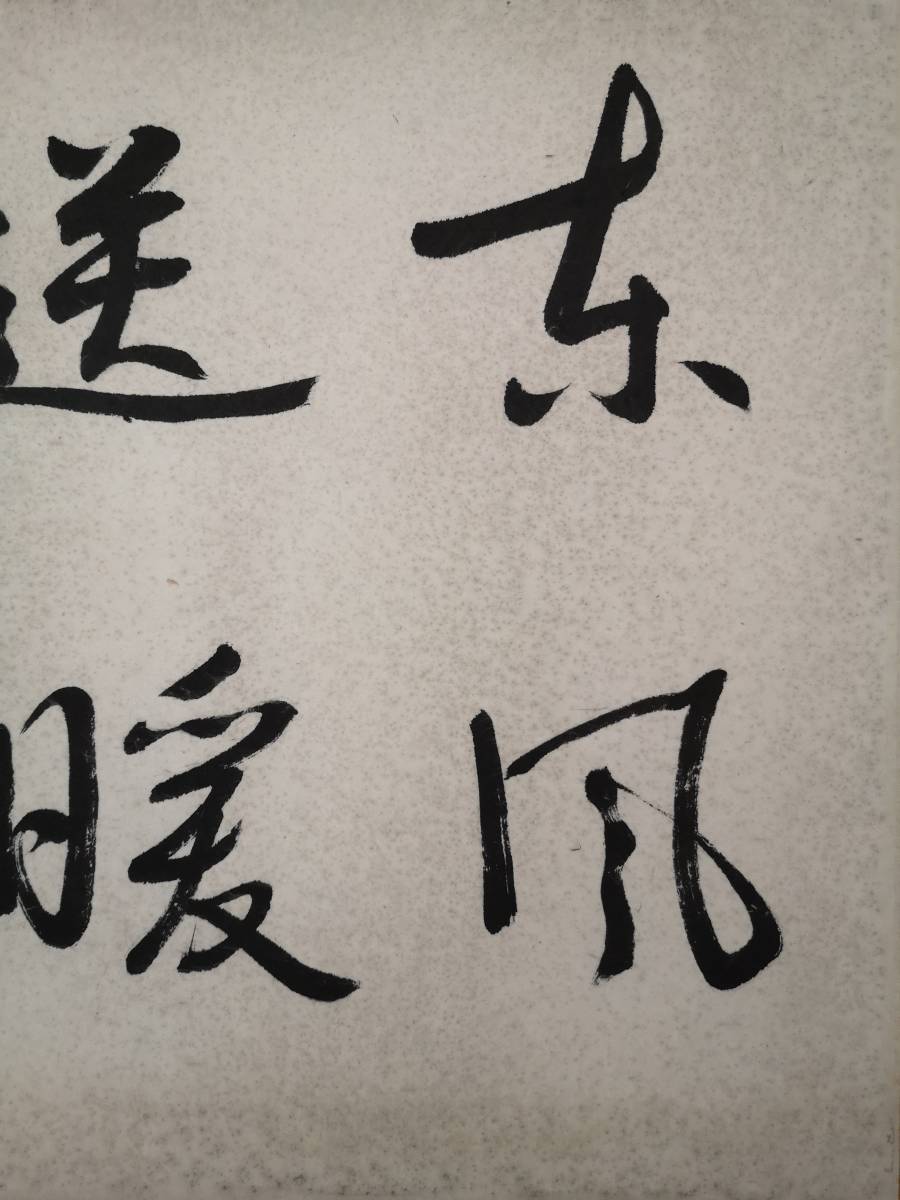 东风
送暖